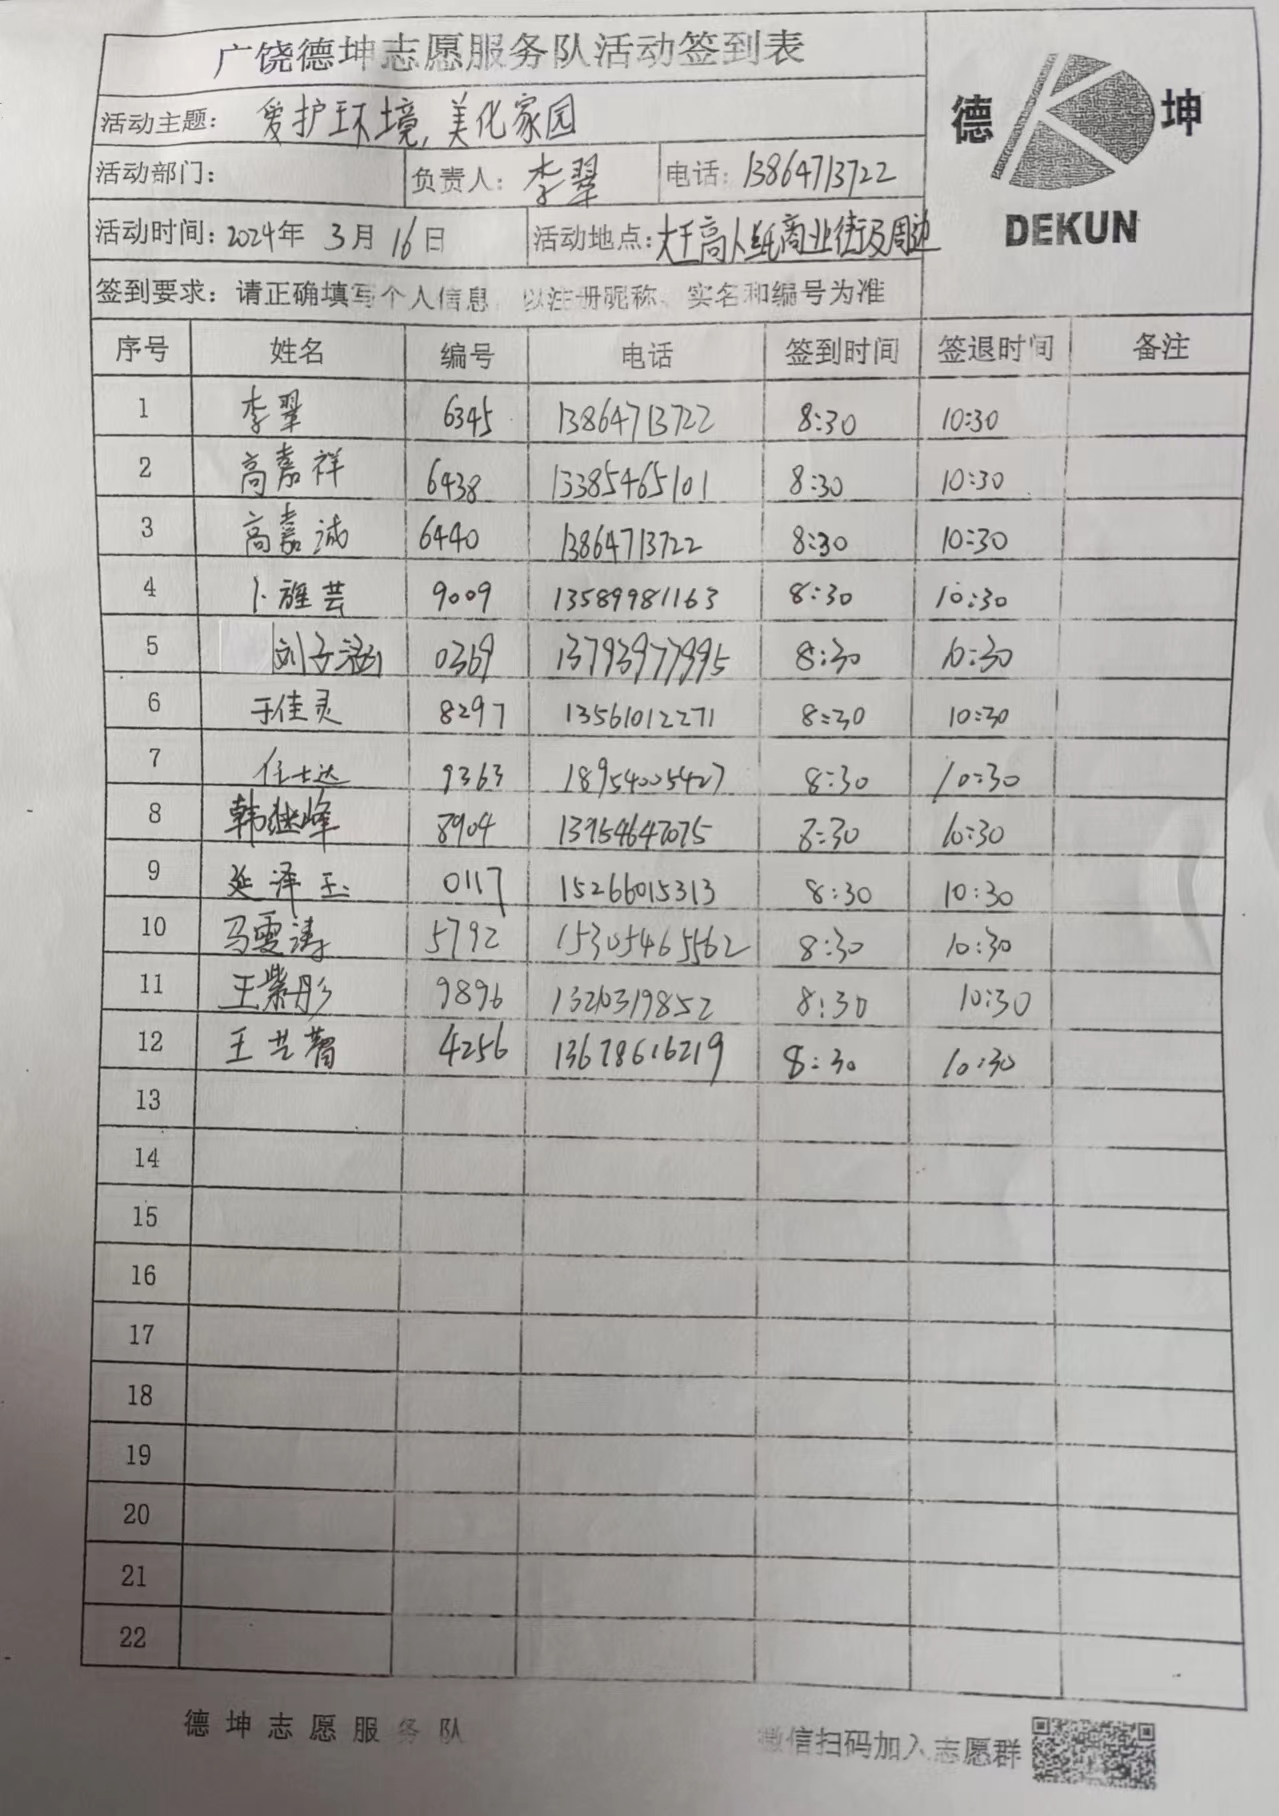 广饶德坤志愿服务队活动签到表
德 坤
DEKUN
活动主题: 爱护环境,美化家园
活动部门: 负责人: 李翠 电话: 13864713722
活动时间: 2024年 3月 16日 活动地点: 大王高人纸商业街及周边
签到要求: 请正确填写个人信息,以注册昵称、实名和编号为准
序号 姓名 编号 电话 签到时间 签退时间 备注
1 李翠 6345 13864713722 8:30 10:30
2 高嘉祥 6438 13385465101 8:30 10:30
3 高嘉诚 6440 13864713722 8:30 10:30
4 卜雅芸 9009 13589981163 8:30 10:30
5 刘子涵 0369 13793977995 8:30 10:30
6 于佳灵 8297 13561012271 8:30 10:30
7 任士达 9363 18954005427 8:30 10:30
8 韩继峰 8904 13954647075 8:30 10:30
9 延泽玉 0117 15266015313 8:30 10:30
10 马雯涛 5792 15305465562 8:30 10:30
11 王紫彤 9896 8:30 10:30
12 王艺 4256 13678616219 8:30 10:30
13
14
15
16
17
18
19
20
21
22
德坤志愿服务队
微信扫码加入志愿群